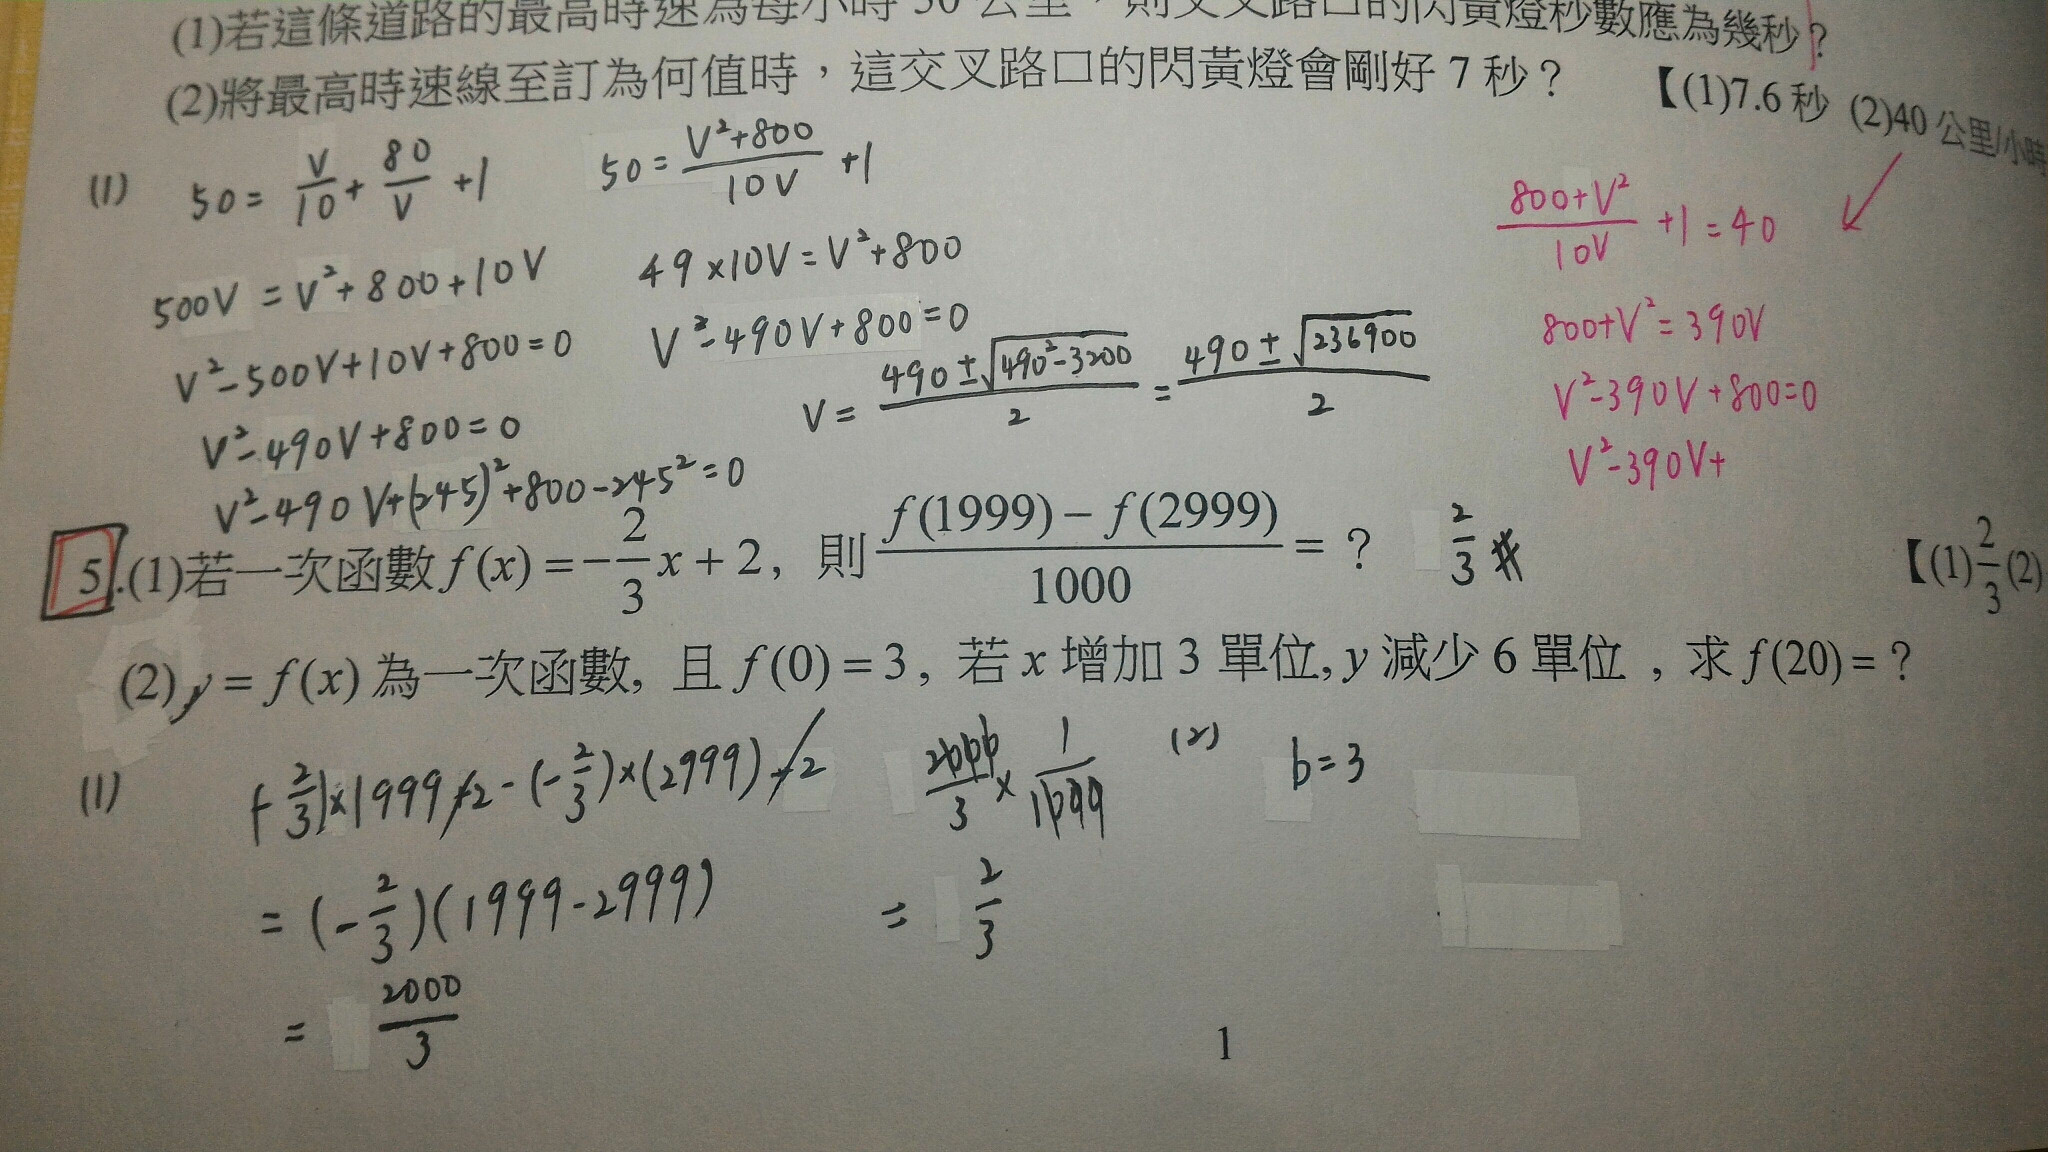 (1)若這條道路的最高時速為每小時 50 公里，則交叉路口的閃黃燈秒數應為幾秒？
(2)將最高時速線至訂為何值時，這交叉路口的閃黃燈會剛好 7 秒？ 【(1)7.6 秒 (2)40 公里/小時
(1) 50 = V/10 + 80/V + 1
50 = (V²+800)/10V + 1
500V = V²+800+10V
49×10V = V²+800
V²-500V+10V+800=0
V²-490V+800=0
V²-490V+800=0
V = (490±√(490²-3200))/2 = (490±√236900)/2
V²-490V+(245)²+800-245²=0
(800+V²)/10V +1 = 40
800+V²=390V
V²-390V+800=0
V²-390V+
5.(1)若一次函數 f(x) = -2/3 x + 2, 則 (f(1999) - f(2999))/1000 = ? 2/3 # 【(1)2/3(2)
(2) y = f(x) 為一次函數, 且 f(0) = 3, 若 x 增加 3 單位, y 減少 6 單位 , 求 f(20) = ?
(1) (-2/3)×1999+2-(-2/3)×(2999)-2
= (-2/3)(1999-2999)
= 2000/3
2000/3 × 1/1000
= 2/3
(2) b=3
1